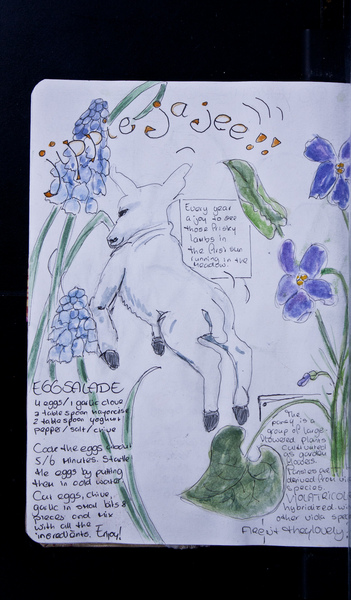 jippie jajee!!
Every year
a joy to see
those frisky
lambs in
the first sun
running in the
meadow.
EGGSALADE
4 eggs / 1 garlic clove
2 table spoon mayonaise
2 table spoon yoghurt
pepper / salt / chive
Cook the eggs about
5/6 minutes. Startle
the eggs by putting
them in cold water.
Cut eggs, chive,
garlic in small bits &
pieces and mix
with all the
ingrediants. Enjoy!
The
pansy is a
group of large-
flowered plants
cultivated
as garden
flowers.
Pansies are
derived from
species
hybridized
other viola
Aren't they lovely